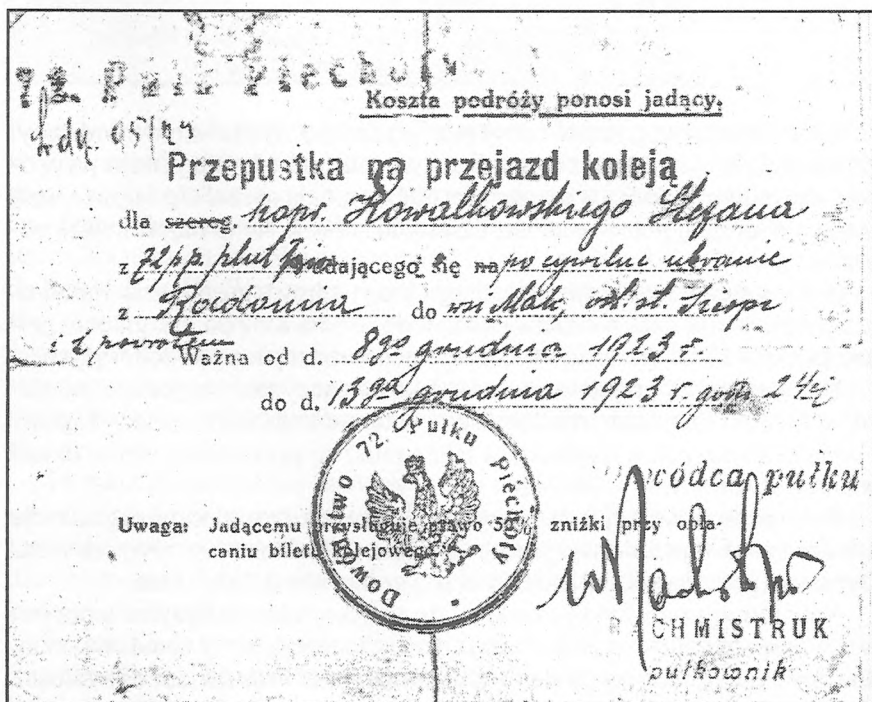 72 Pułk Piechoty
Koszta podróży ponosi jadący.
Przepustka na przejazd koleją
dla szereg. kapr. Kowalkowskiego Stefana
z 72 p.p. plut. udającego się na po cywilne ubranie
z Radomia do wsi Mak, st.
i z powrotem
Ważna od d. 8go grudnia 1923 r.
do d. 13go grudnia 1923 r. godz 24
Dowództwo 72. Pułku Piechoty
Dowódca pułku
Uwaga: Jadącemu przysługuje prawo 50% zniżki przy opła-
caniu biletu kolejowego
RACHMISTRUK
pułkownik